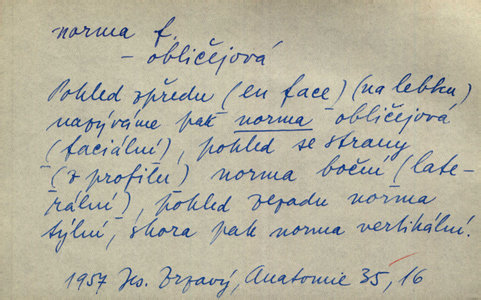 norma f.
– obličejová
Pohled zpředu (en face) (na lebku)
nazýváme pak norma obličejová
(faciální), pohled se strany
(z profilu) norma boční (late-
rální), pohled zezadu norma
týlní, shora pak norma vertikální.
1957 Jos. Zrzavý, Anatomie 35, 16